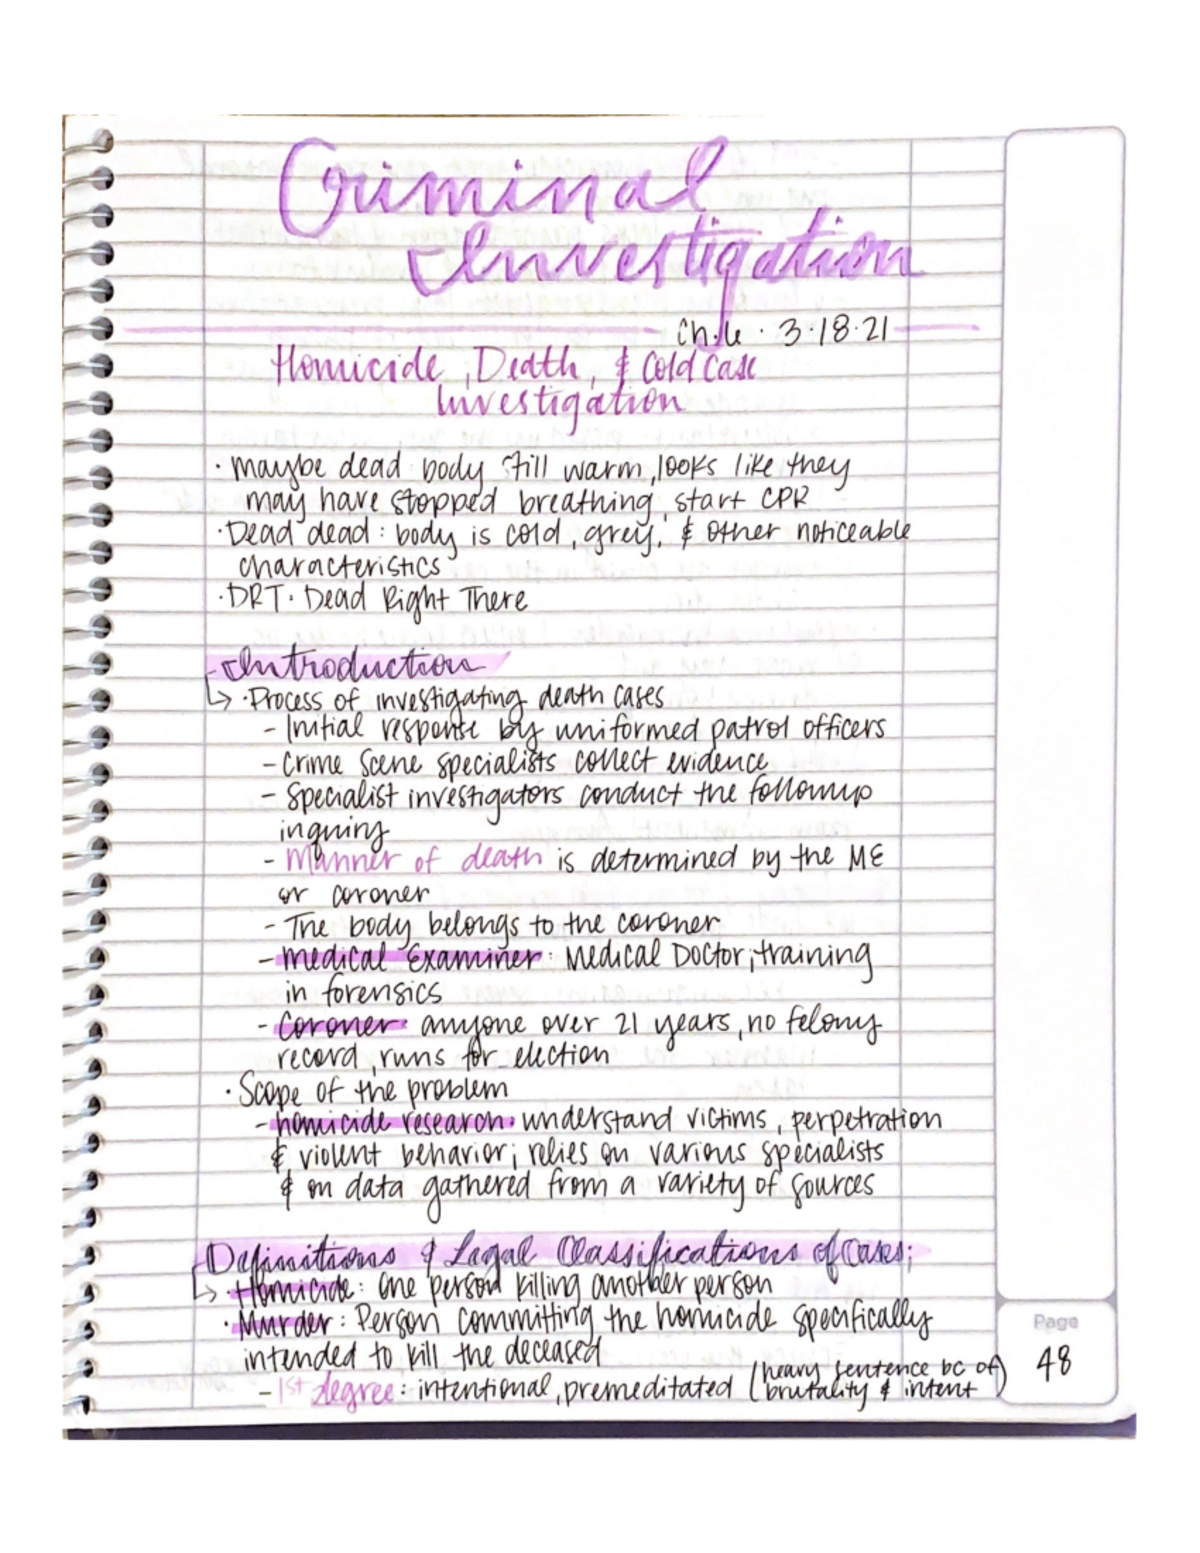 Criminal
Investigation
Ch. 6 · 3·18·21
Homicide, Death, & Cold Case
Investigation
· maybe dead body still warm, looks like they
may have stopped breathing, start CPR
· Dead dead: body is cold, grey, & other noticeable
characteristics
· DRT · Dead Right There
Introduction
↳ · Process of investigating death cases
- Initial response by uniformed patrol officers
- Crime scene specialists collect evidence
- Specialist investigators conduct the followup
inquiry
- Manner of death is determined by the ME
or coroner
- The body belongs to the coroner
- Medical Examiner: Medical Doctor; training
in forensics
- Coroner: anyone over 21 years, no felony
record, runs for election
· Scope of the problem
- homicide research: understand victims, perpetration
& violent behavior; relies on various specialists
& on data gathered from a variety of sources
Definitions & Legal Classifications of Cases;
↳ · Homicide: one person killing another person
· Murder: Person committing the homicide specifically
intended to kill the deceased
- 1st degree: intentional, premeditated (heavy sentence bc of
brutality & intent)
Page
48